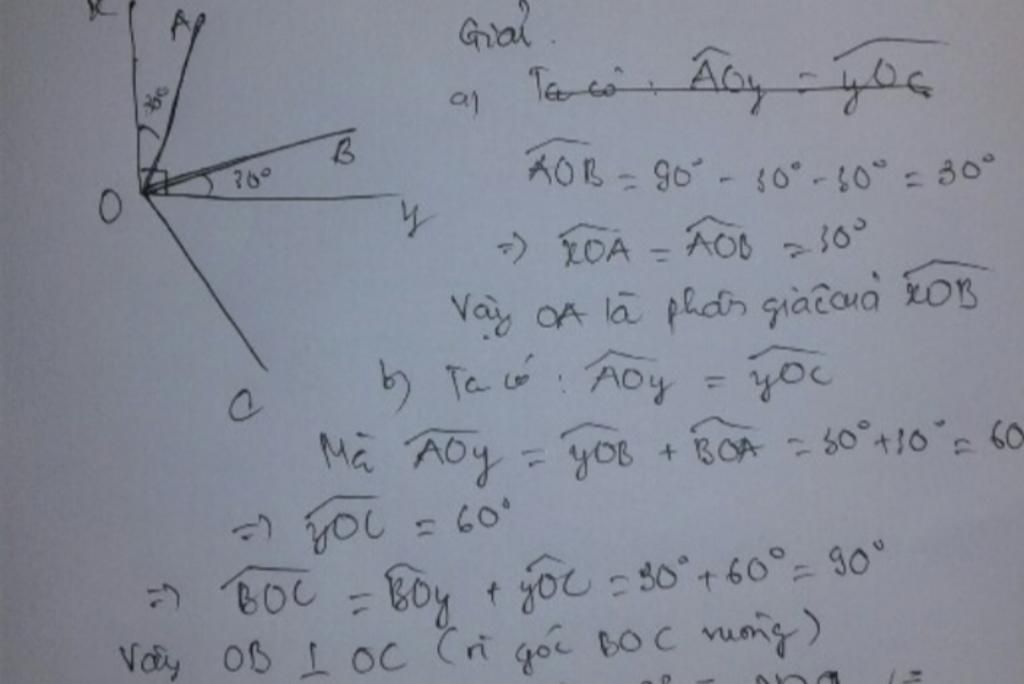 x
A
30°
B
30°
O
y
C
Giải.
a) Ta có : AOy = yOC
AOB = 90° - 30° - 30° = 30°
=> xOA = AOB = 30°
Vậy OA là phân giác của xOB
b) Ta có : AOy = yOC
Mà AOy = yOB + BOA = 30° + 30° = 60
=> yOC = 60°
=> BOC = BOy + yOC = 30° + 60° = 90°
Vậy OB ⊥ OC (vì góc BOC vuông)